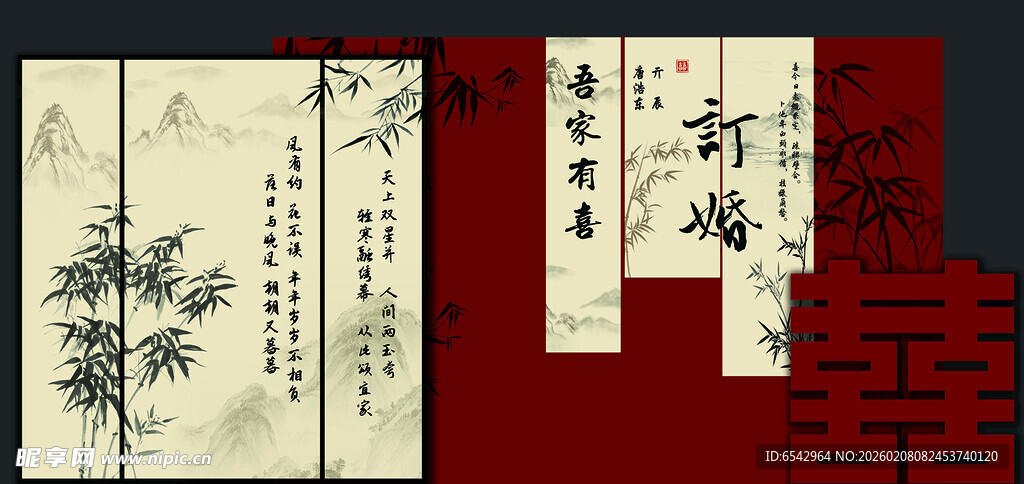 天上双星并 人间两玉夸
轻寒融绣幕 从此颂宜家
风有约 花不误 年年岁岁不相负
落日与晚风 朝朝又暮暮
吾家有喜
亓辰
唐浩东
囍
订婚
喜今日赤绳系定，珠联璧合。
卜他年白头永偕，桂馥兰馨。
囍
昵享网 www.nipic.cn
ID:6542964 NO:20260208082453740120